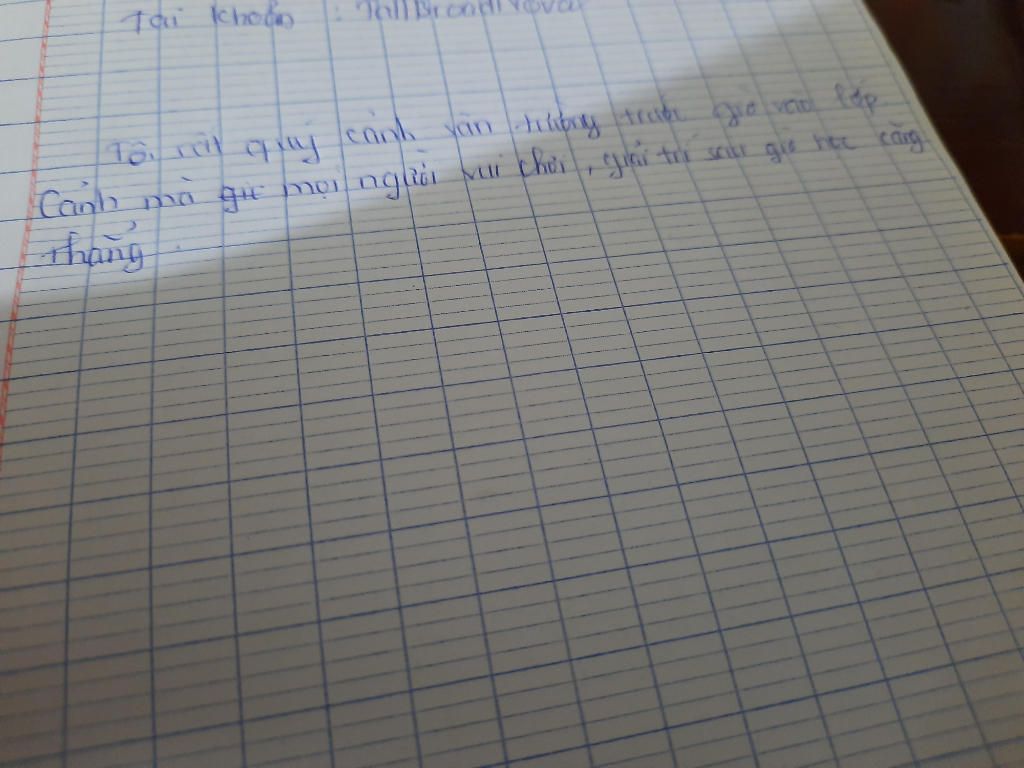 Tài khoản : TallBrandlVova
Tôi rất quý cảnh sân trường trước giờ vào lớp
Cảnh mà mọi người vui chơi, giải trí sau giờ học căng
thẳng.